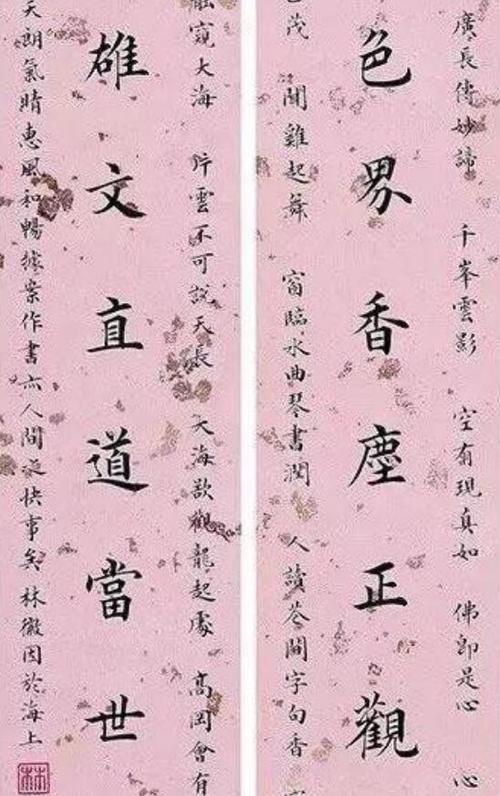 廣長傳妙諦 千峯雲影 空有現真如 佛即是心 心
色界香塵正觀
茂 聞雞起舞 窗臨水曲琴書潤 人讀花間字句香
窺大海 片雲不可說天長 大海欲觀龍起處 高岡會有
雄文直道當世
天朗氣晴惠風和暢據案作書亦人間一快事矣 林徽因於海上
林